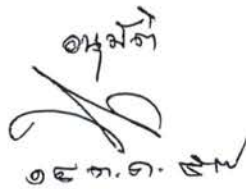 อนุมัติ
๑๕ ก.ค. ๕๗